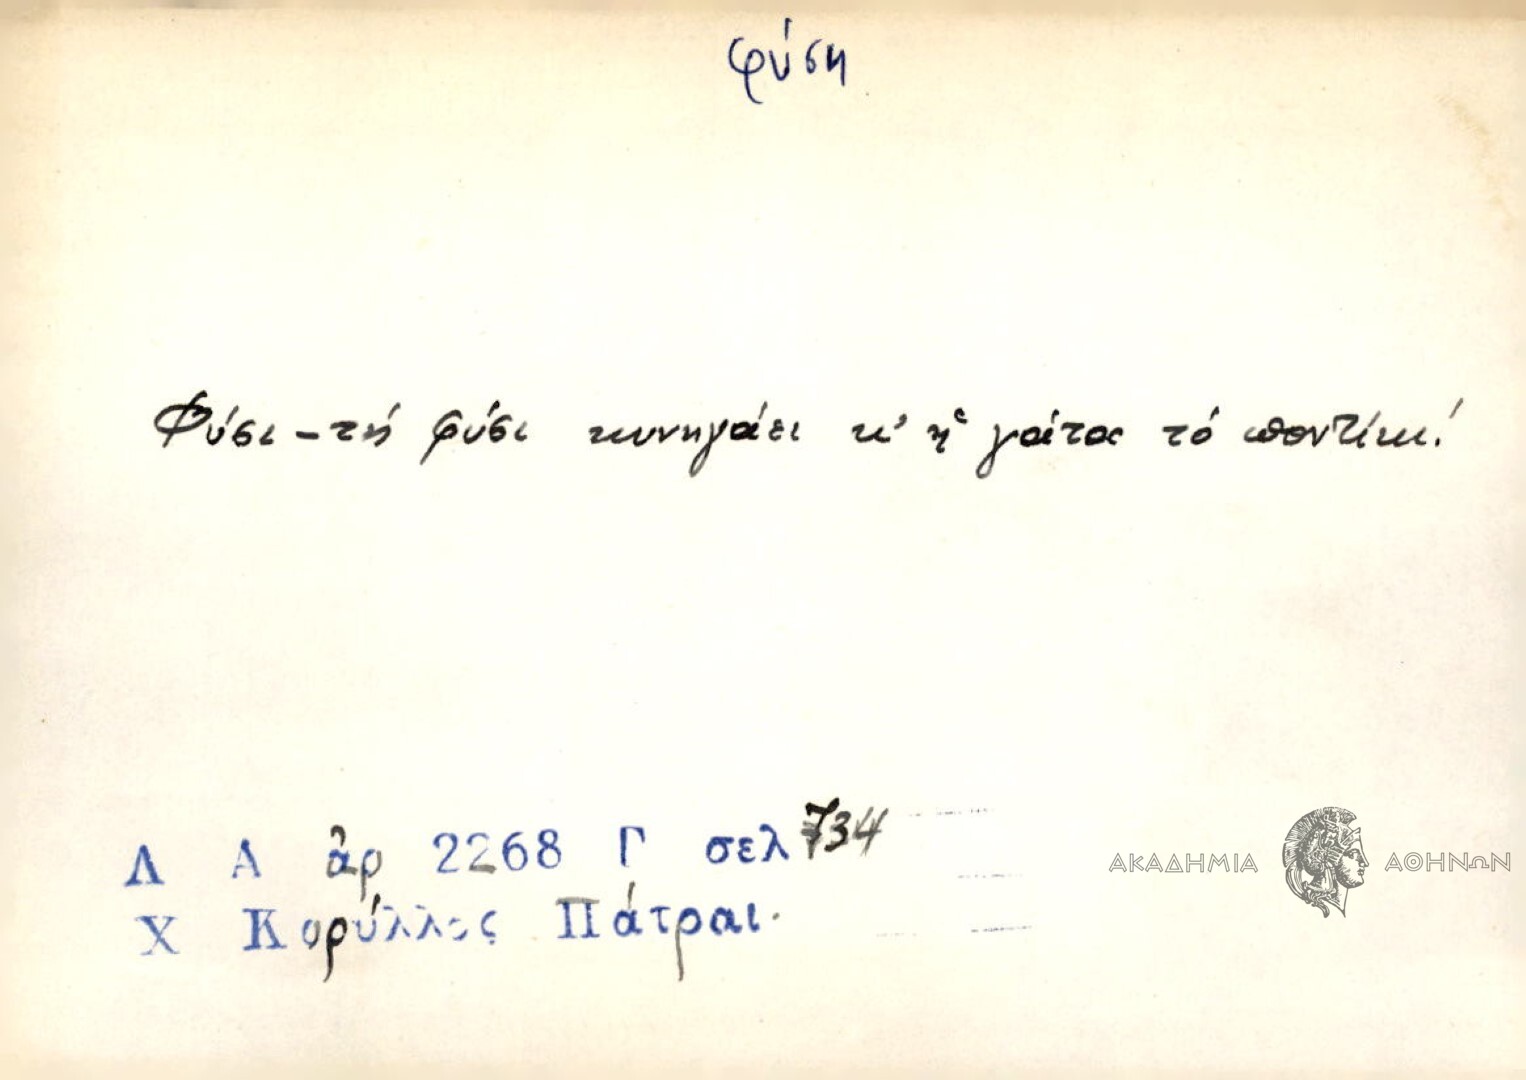 φύση
Φύσι - τή φύσι κυνηγάει κ' ἡ γάτα τό ποντίκι!
Λ Α ἀρ 2268 Γ σελ 734
Χ Κορύλλος Πάτραι.
ΑΚΑΔΗΜΙΑ ΑΘΗΝΩΝ